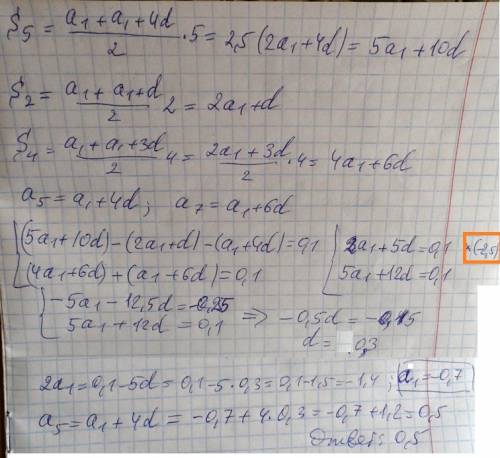 S₅ = (a₁ + a₁ + 4d)/2 · 5 = 2,5 (2a₁ + 4d) = 5a₁ + 10d
S₂ = (a₁ + a₁ + d)/2 2 = 2a₁ + d
S₄ = (a₁ + a₁ + 3d)/2 4 = (2a₁ + 3d)/2 · 4 = 4a₁ + 6d
a₅ = a₁ + 4d ; a₇ = a₁ + 6d
{ (5a₁ + 10d) − (2a₁ + d) − (a₁ + 4d) = 0,1 { 2a₁ + 5d = 0,1 ×(−2,5)
(4a₁ + 6d) + (a₁ + 6d) = 0,1 5a₁ + 12d = 0,1
{ −5a₁ − 12,5d = −0,25
5a₁ + 12d = 0,1 ⇒ −0,5d = −0,15
d = 0,3
2a₁ = 0,1 − 5d = 0,1 − 5 · 0,3 = 0,1 − 1,5 = −1,4 ; a₁ = −0,7
a₅ = a₁ + 4d = −0,7 + 4 · 0,3 = −0,7 + 1,2 = 0,5
Ответ: 0,5